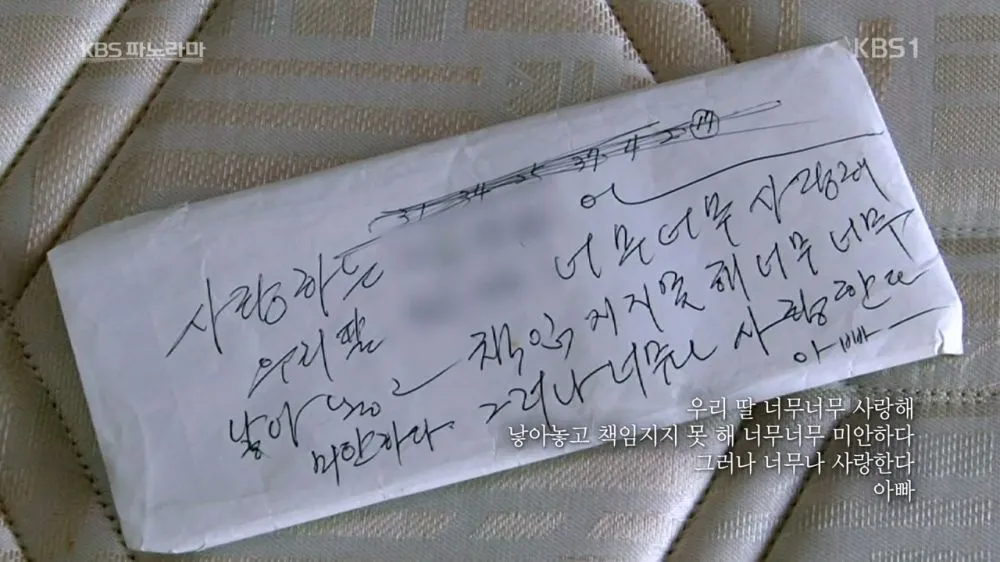 KBS 파노라마
KBS1
31 34 25 37 4 2 17
사랑하는
우리 딸
너무너무 사랑해
낳아 놓고 책임지지 못 해 너무너무
미안하다. 그러나 너무나 사랑한다
아빠
우리 딸 너무너무 사랑해
낳아놓고 책임지지 못 해 너무너무 미안하다
그러나 너무나 사랑한다
아빠